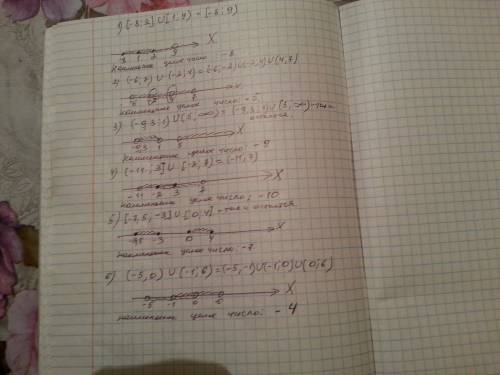 1) [-8;2] ∪ [1;4) = [-8;4)
-8 1 2 4 X
наименьшее целое число: -8
2) (-6;2) ∪ (-2;7) = (-6;-2) ∪ (-2;4) ∪ (4;7)
x
наименьшее целое число: -5
3) (-9,3;1) ∪ (5;∞) = (-9,3;1) ∪ (5;∞) - так и
осталось.
-9,3 1 5 X
наименьшее целое число: -9
4) (-11;-3] ∪ [-2;7) = (-11;7)
-11 -2 3 7 X
наименьшее целое число: -10
5) [-7,5;-3] ∪ [0;4] - так и осталось
-7,5 -3 0 4 X
наименьшее целое число: -7
6) (-5;0) ∪ (-1;6) = (-5;-1) ∪ (-1;0) ∪ (0;6)
-5 -1 0 6 X
наименьшее целое число: -4